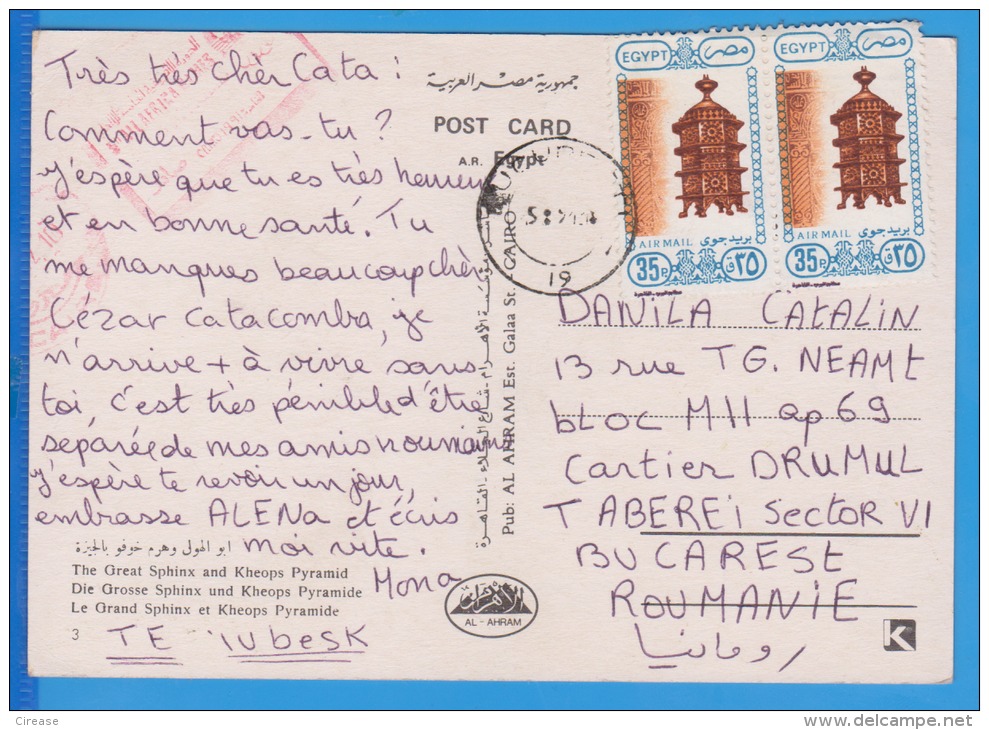 Très très cher Cata :
Comment vas-tu ?
j'espère que tu es très heureux
et en bonne santé. Tu
me manques beaucoup cher
Cézar Catacomba, je
n'arrive + à vivre sans
toi, c'est très pénible d'être
séparée de mes amis roumains
j'espère te revoir un jour,
embrasse ALENA et écris
moi vite.
Mona
TE iubesK
ابو الهول وهرم خوفو بالجيزة
The Great Sphinx and Kheops Pyramid
Die Grosse Sphinx und Kheops Pyramide
Le Grand Sphinx et Kheops Pyramide
3
جمهورية مصر العربية
POST CARD
A.R. Egypt
Pub: AL AHRAM Est. Galaa St. CAIRO
AL - AHRAM
EGYPT مصر
AIRMAIL بريد جوى
35P. ٣٥ق
EGYPT مصر
AIRMAIL بريد جوى
35P. ٣٥ق
19
DANILA CATALIN
13 rue TG. NEAMt
bLOC M11 ap 69
Cartier DRUMUL
TABEREi SectoR VI
BUCAREST
ROUMANIE
رومانيا
K
Cirease
www.delcampe.net